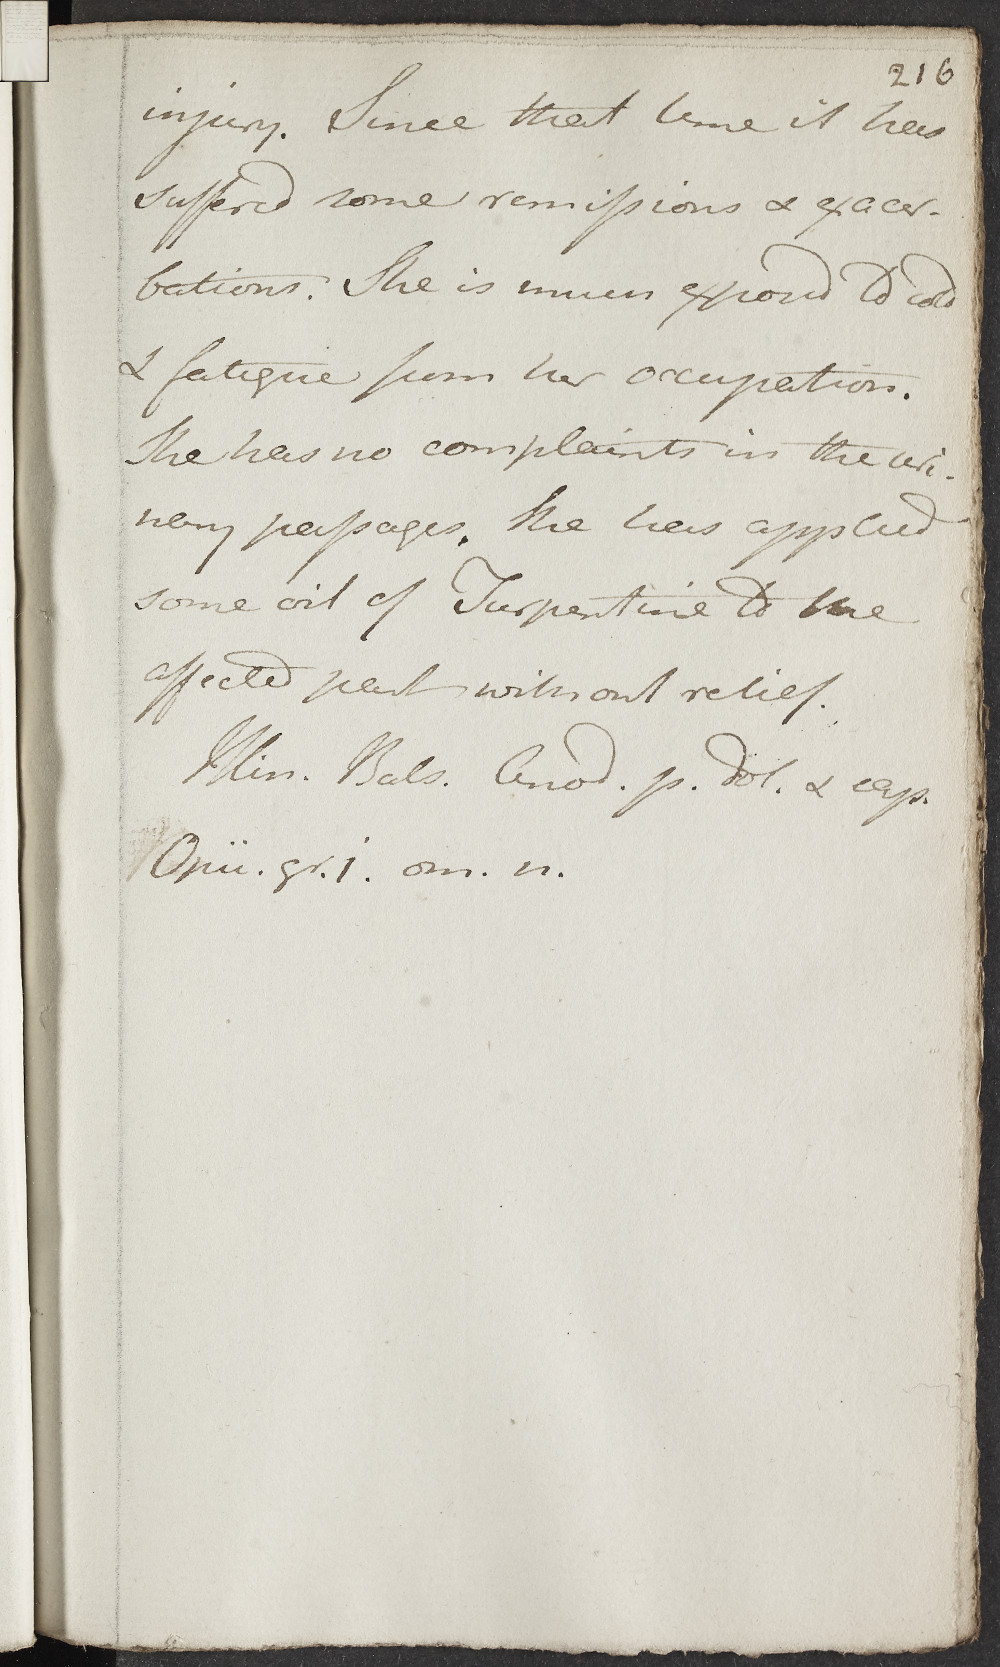 216
injury. Since that time it has
suffered some remissions & exacer-
bations. She is much exposed to cold
& fatigue from her occupation.
She has no complaints in the uri-
nary passages. She has applied
some oil of Turpentine to the
affected part without relief.
Illin. Bals. Anod. p. dol. & cap.
Opii. gr. i. om. n.